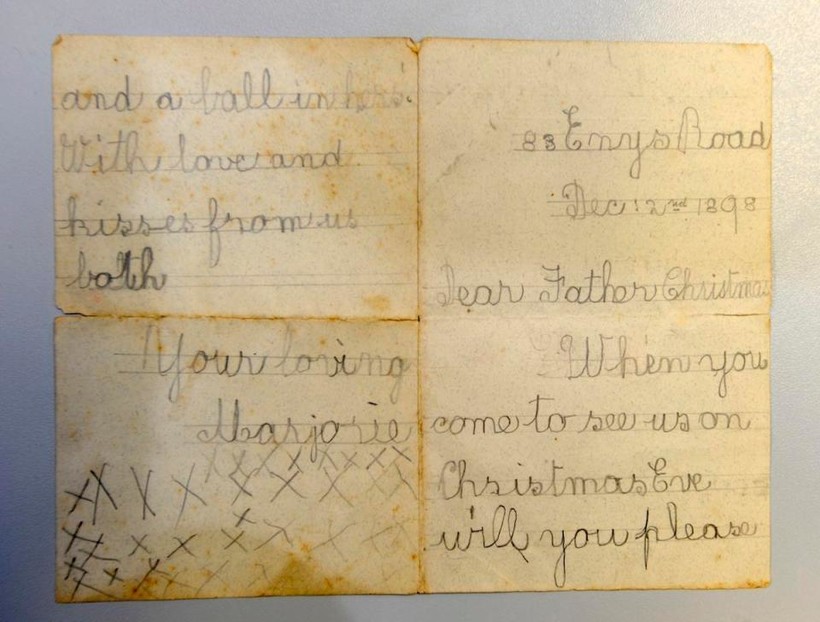 83 Enys Road
Dec: 2nd 1898
Dear Father Christmas
When you
come to see us on
Christmas Eve
will you please
and a ball in hers.
With love and
kisses from us
both
Your loving
Marjorie